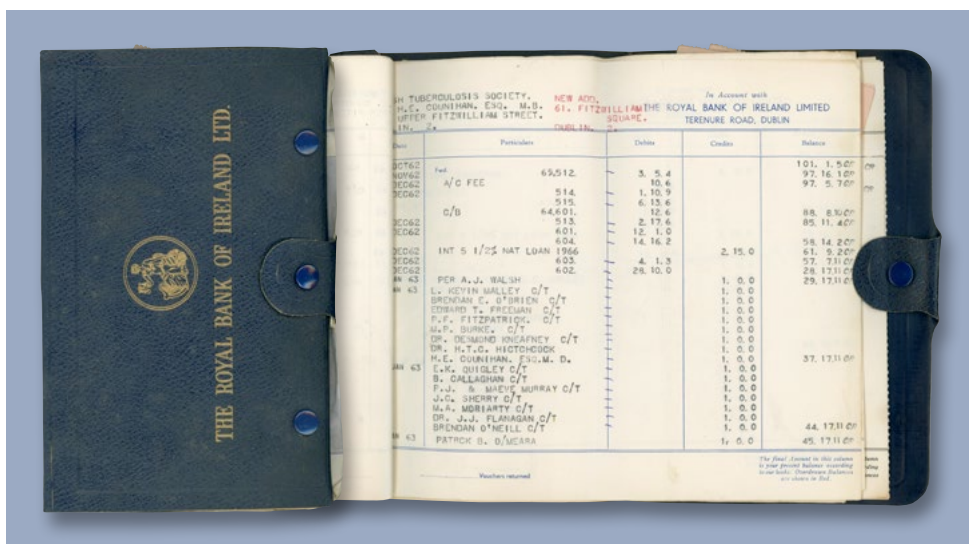 THE ROYAL BANK OF IRELAND LTD.
SH TUBERCULOSIS SOCIETY.
H.E. COUNIHAN. ESQ. M.B.
UPPER FITZWILLIAM STREET.
LIN. 2.
NEW ADD.
61. FITZWILLIAM
SQUARE.
DUBLIN. 2.
In Account with
THE ROYAL BANK OF IRELAND LIMITED
TERENURE ROAD, DUBLIN
Date Particulars Debits Credits Balance
OCT62 101. 1. 5 CR
NOV62 Fwd. 512. 3. 5. 4 97. 16. 1 CR
DEC62 A/C FEE 10. 6 97. 5. 7 CR
DEC62 514. 1. 10. 9
515. 6. 13. 6
C/B 64,601. 12. 6 88. 8. 10 CR
DEC62 513. 2. 17. 6 85. 11. 4 CR
DEC62 601. 12. 1. 0
604. 14. 16. 2 58. 14. 2 CR
DEC62 INT 5 1/2% NAT LOAN 1966 2. 15. 0 61. 9. 2 CR
DEC62 603. 4. 1. 3 57. 7. 11 CR
DEC62 602. 28. 10. 0 28. 17. 11 CR
AN 63 PER A.J. WALSH 1. 0. 0 29. 17. 11 CR
L. KEVIN MALLEY C/T 1. 0. 0
BRENDAN E. O'BRIEN C/T 1. 0. 0
EDWARD T. FREEMAN C/T 1. 0. 0
P.F. FITZPATRICK. C/T 1. 0. 0
M.P. BURKE. C/T 1. 0. 0
DR. DESMOND KNEAFNEY C/T 1. 0. 0
DR. H.T.G. HIGTCHCOCK 1. 0. 0
H.E. COUNIHAN. ESQ.M. D. 1. 0. 0 37. 17. 11 CR
JAN 63 E.K. QUIGLEY C/T 1. 0. 0
B. CALLAGHAN C/T 1. 0. 0
P.J. & MAEVE MURRAY C/T 1. 0. 0
J.C. SHERRY C/T 1. 0. 0
M.A. MORIARTY C/T 1. 0. 0
DR. J.J. FLANAGAN C/T 1. 0. 0
BRENDAN O'NEILL C/T 1. 0. 0 44. 17. 11 CR
N 63 PATRCK B. O/MEARA 1. 0. 0 45. 17. 11 CR
Vouchers returned
The final Amount in this column
is your present balance according
to our books. Overdrawn Balances
are shown in Red.